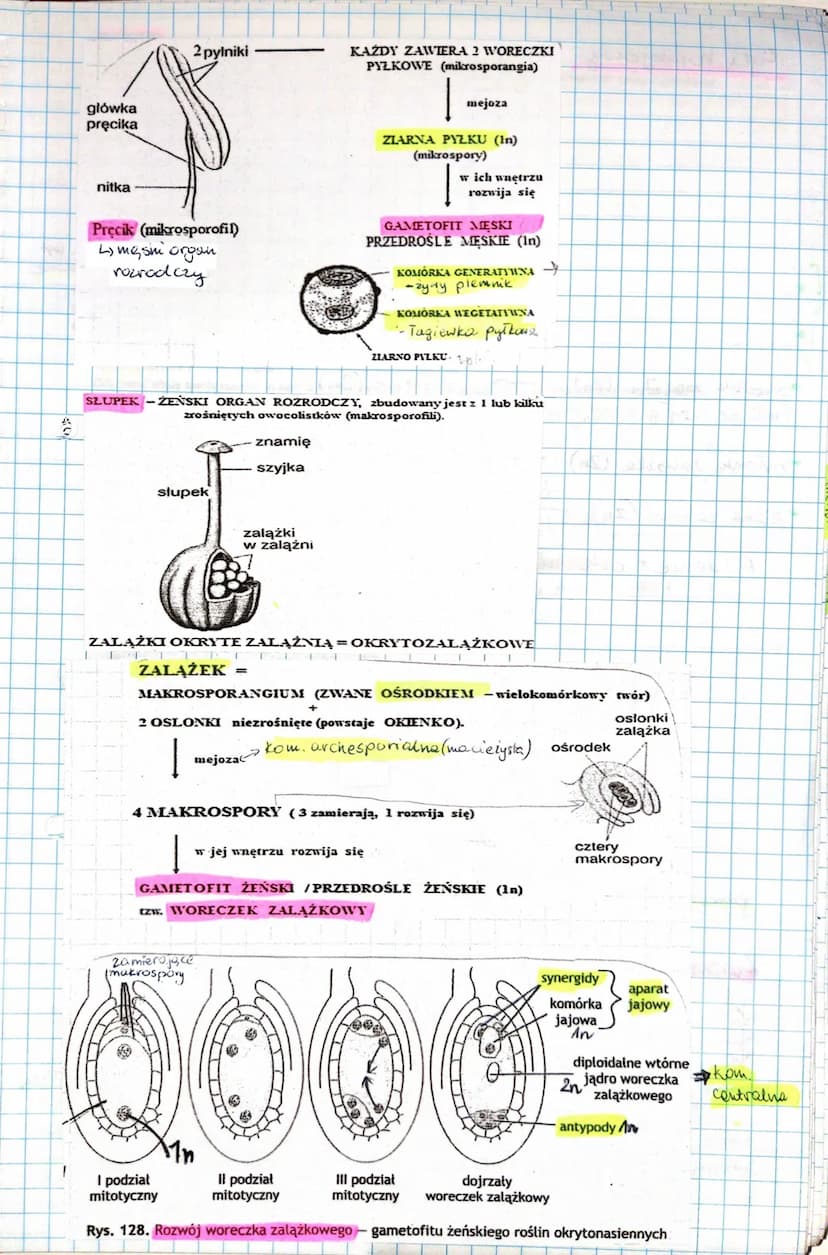 2 pylniki
KAŻDY ZAWIERA 2 WORECZKI
PYŁKOWE (mikrosporangia)
mejoza
główka
pręcika
ZIARNA PYŁKU (1n)
(mikrospory)
w ich wnętrzu
rozwija się
nitka
Pręcik (mikrosporofil)
GAMETOFIT MĘSKI
PRZEDROŚLE MĘSKIE (1n)
↳ męski organ
rozrodczy
KOMÓRKA GENERATYWNA →
KOMÓRKA WEGETATYWNA
- łagiewka pyłkowa
ZIARNO PYŁKU
SŁUPEK – ŻEŃSKI ORGAN ROZRODCZY, zbudowany jest z 1 lub kilku
zrośniętych owocolistków (makrosporofili).
znamię
szyjka
słupek
zalążki
w zalążni
ZALĄŻKI OKRYTE ZALĄŻNIĄ = OKRYTOZALĄŻKOWE
ZALĄŻEK =
MAKROSPORANGIUM (ZWANE OŚRODKIEM – wielokomórkowy twór)
+
2 OSLONKI niezrośnięte (powstaje OKIENKO).
oslonki
zalążka
mejoza
kom. archesporialna (macierzysta)
ośrodek
4 MAKROSPORY ( 3 zamierają, 1 rozwija się)
w jej wnętrzu rozwija się
cztery
makrospory
GAMETOFIT ŻEŃSKI / PRZEDROŚLE ŻEŃSKIE (1n)
tzw. WORECZEK ZALĄŻKOWY
zamierające
makrospory
synergidy
komórka
jajowa
1n
aparat
jajowy
diploidalne wtórne
2n jądro woreczka
zalążkowego
⇒ kom.
centralna
antypody 1n
1n
I podział
mitotyczny
II podział
mitotyczny
III podział
mitotyczny
dojrzały
woreczek zalążkowy
Rys. 128. Rozwój woreczka zalążkowego – gametofitu żeńskiego roślin okrytonasiennych